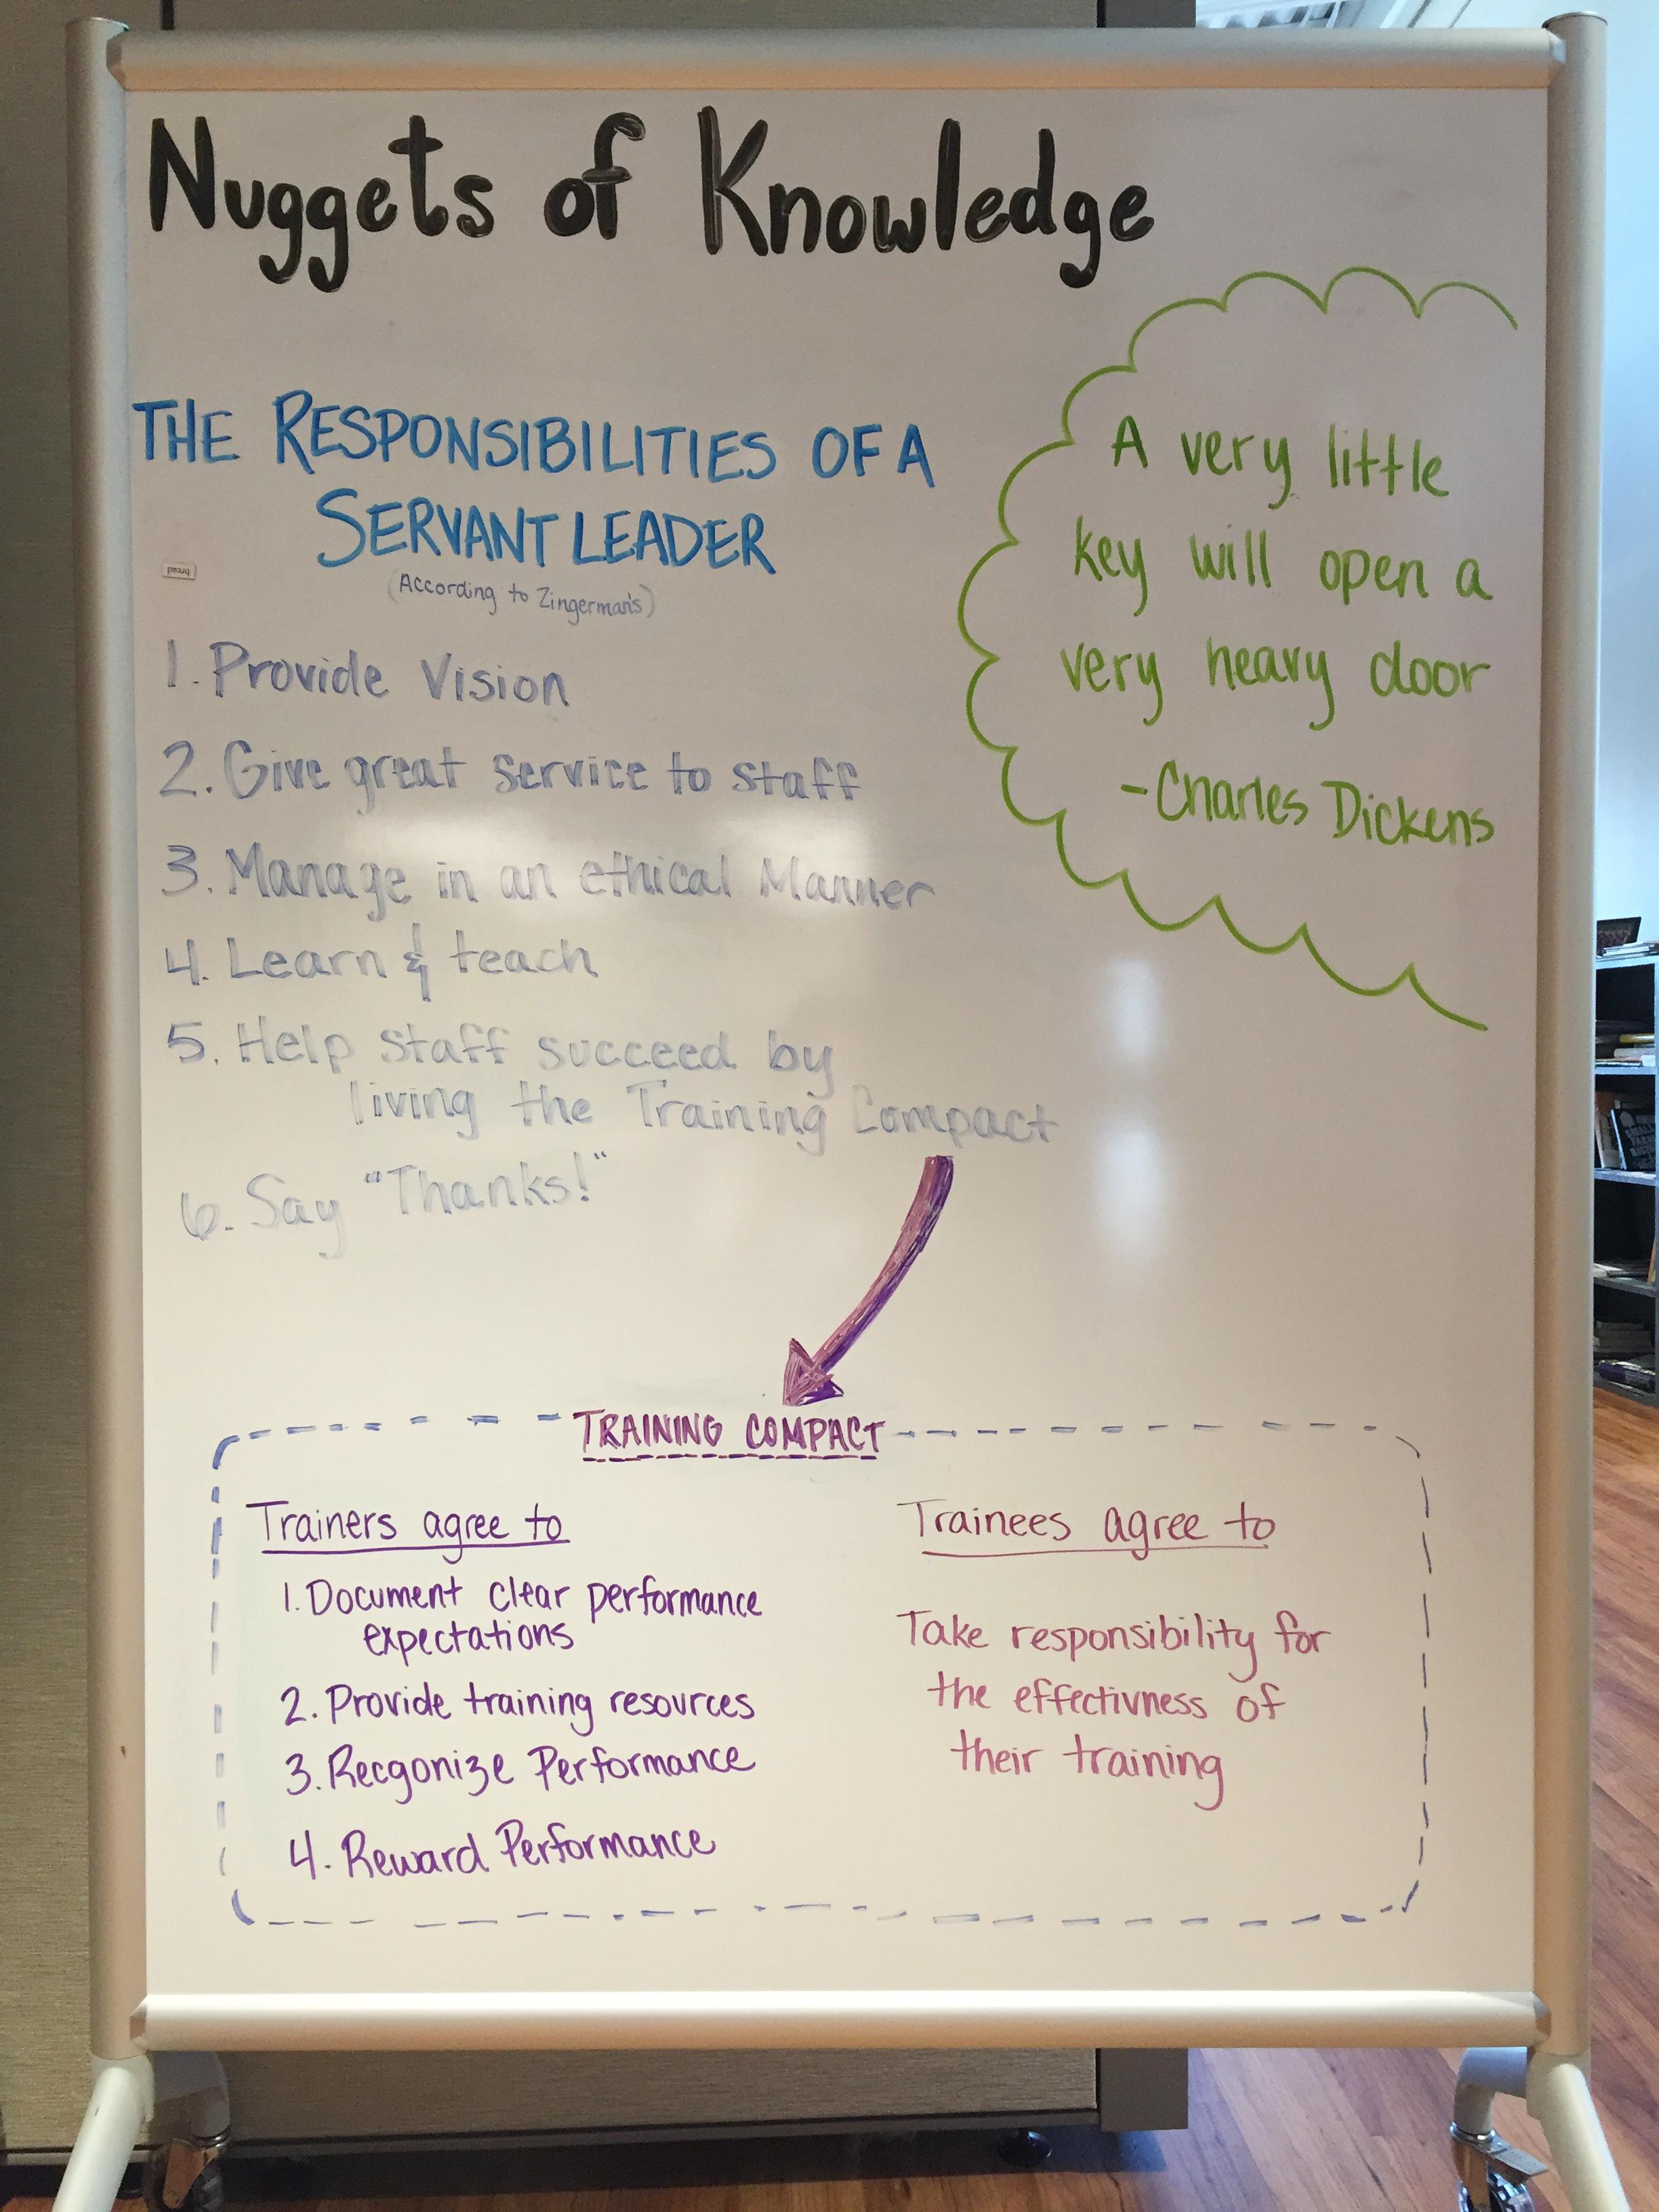 Nuggets of Knowledge
THE RESPONSIBILITIES OF A
SERVANT LEADER
(According to Zingerman's)
bread
1. Provide Vision
2. Give great service to staff
3. Manage in an ethical Manner
4. Learn & teach
5. Help staff succeed by
living the Training Compact
6. Say "Thanks!"
A very little
key will open a
very heavy door
-Charles Dickens
TRAINING COMPACT
Trainers agree to
1. Document clear performance
expectations
2. Provide training resources
3. Recgonize Performance
4. Reward Performance
Trainees agree to
Take responsibility for
the effectivness of
their training